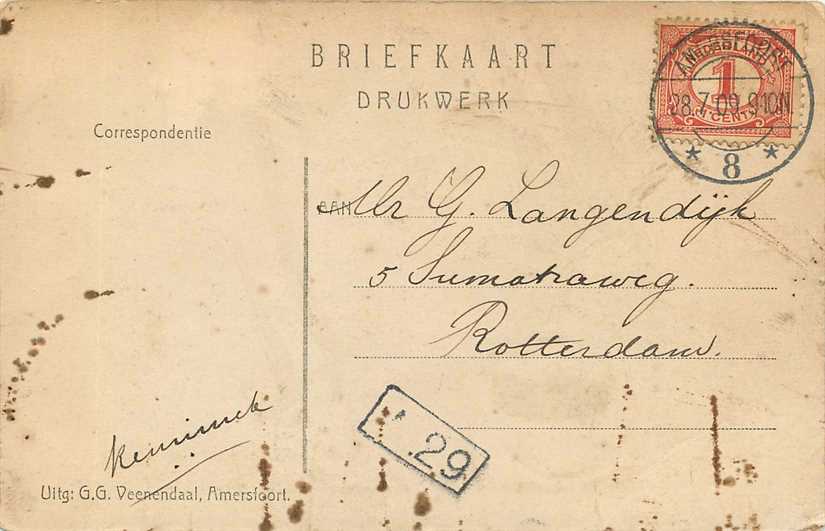 BRIEFKAART
DRUKWERK
NEDERLAND
1
CENT
28.7.09 9-10N
* 8 *
Correspondentie
AAN Mr G. Langendijk
5 Sumatraweg.
Rotterdam.
* 29
Uitg: G.G. Veenendaal, Amersfoort.